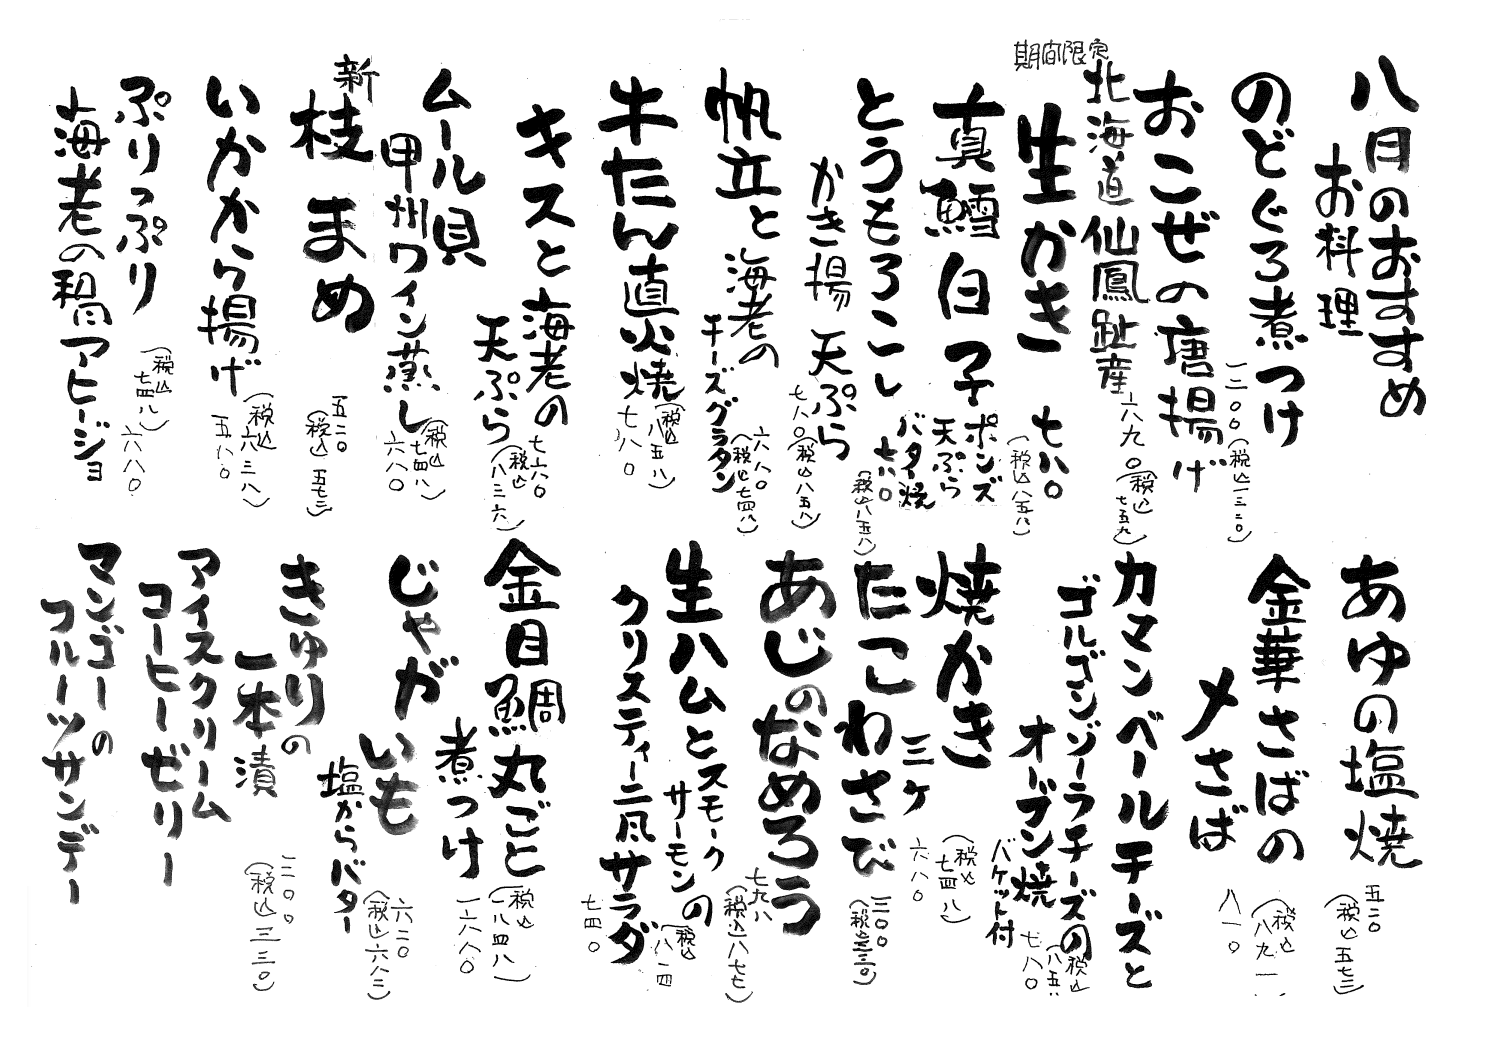 八月のおすすめ
お料理
のどぐろ煮つけ
一二〇〇(税込一三二〇)
おこぜの唐揚げ
六九〇(税込七五九)
期間限定
北海道仙鳳趾産
生かき
七八〇
(税込八五八)
真鱈白子
ポンズ
天ぷら
バター焼
七八〇
(税込八五八)
とうもろこし
かき揚天ぷら
七八〇(税込八五八)
帆立と海老の
チーズグラタン
六八〇
(税込七四八)
牛たん直火焼
(税込八五八)
七八〇
キスと海老の
天ぷら
七六〇
(税込八三六)
ムール貝
甲州ワイン蒸し
(税込七四八)
六八〇
新
枝まめ
五二〇
(税込五七三)
いかから揚げ
(税込六三八)
五八〇
ぷりっぷり
海老の稲アヒージョ
(税込七四八)
六八〇
あゆの塩焼
五二〇
(税込五七三)
金華さばの
〆さば
(税込八九一)
八一〇
カマンベールチーズと
ゴルゴンゾーラチーズの
オーブン焼
バケット付
(税込八五八
七八〇
焼かき
三ケ
(税込七四八)
六八〇
たこわさび
三〇〇
(税込三三〇)
あじのなめろう
七九八
(税込八七七)
生ハムとスモーク
サーモンの
クリスティーニ風サラダ
(税込八一四
七四〇
金目鯛丸ごと
煮つけ
(税込一八四八)
一六八〇
じゃがいも
塩からバター
六二〇
(税込六八二)
きゅりの
一本漬
三〇〇
(税込三三〇)
アイスクリーム
コーヒーゼリー
マンゴーの
フルーツサンデー